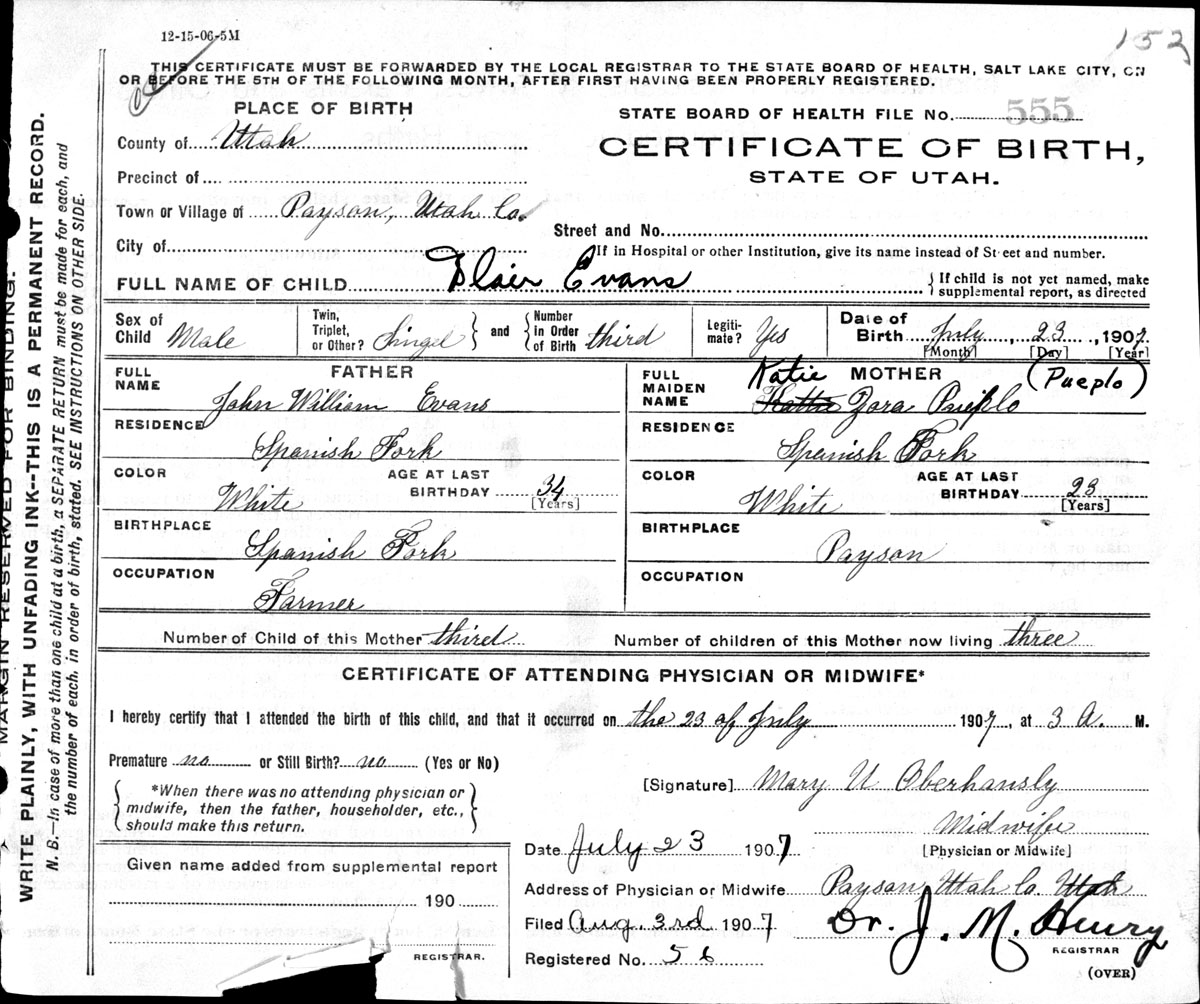 12-15-06-5M
153
THIS CERTIFICATE MUST BE FORWARDED BY THE LOCAL REGISTRAR TO THE STATE BOARD OF HEALTH, SALT LAKE CITY, ON
OR BEFORE THE 5TH OF THE FOLLOWING MONTH, AFTER FIRST HAVING BEEN PROPERLY REGISTERED.
PLACE OF BIRTH
STATE BOARD OF HEALTH FILE No. 555
County of Utah
CERTIFICATE OF BIRTH,
STATE OF UTAH.
Precinct of
Town or Village of Payson, Utah Co.
Street and No.
City of
If in Hospital or other Institution, give its name instead of Street and number.
FULL NAME OF CHILD Blair Evans
{ If child is not yet named, make
supplemental report, as directed
Sex of Child Male
Twin, Triplet, or Other? Singel } and { Number in Order of Birth third
Legiti-mate? Yes
Date of Birth July, 23, 1907.
[Month] [Day] [Year]
FATHER
FULL NAME
John William Evans
RESIDENCE
Spanish Fork
COLOR
White
AGE AT LAST BIRTHDAY 34
[Years]
BIRTHPLACE
Spanish Fork
OCCUPATION
Farmer
MOTHER
FULL MAIDEN NAME
Katie (Pueplo)
Hattie Zora Pueplo
RESIDENCE
Spenish Fork
COLOR
White
AGE AT LAST BIRTHDAY 23
[Years]
BIRTHPLACE
Payson
OCCUPATION
Number of Child of this Mother third
Number of children of this Mother now living three
CERTIFICATE OF ATTENDING PHYSICIAN OR MIDWIFE*
I hereby certify that I attended the birth of this child, and that it occurred on the 23 of July 1907, at 3 A. M.
Premature no or Still Birth? no (Yes or No)
*When there was no attending physician or
midwife, then the father, householder, etc.,
should make this return.
[Signature] Mary U Oberhansly
Midwife
[Physician or Midwife]
Date July 23 1907
Given name added from supplemental report
190
REGISTRAR.
Address of Physician or Midwife Payson, Utah Co. Utah
Filed Aug. 3rd 1907
Dr. J. M. Henry
REGISTRAR
Registered No. 56
(OVER)
MARGIN RESERVED FOR BINDING.
WRITE PLAINLY, WITH UNFADING INK--THIS IS A PERMANENT RECORD.
N. B.—In case of more than one child at a birth, a SEPARATE RETURN must be made for each, and
the number of each, in order of birth, stated. SEE INSTRUCTIONS ON OTHER SIDE.